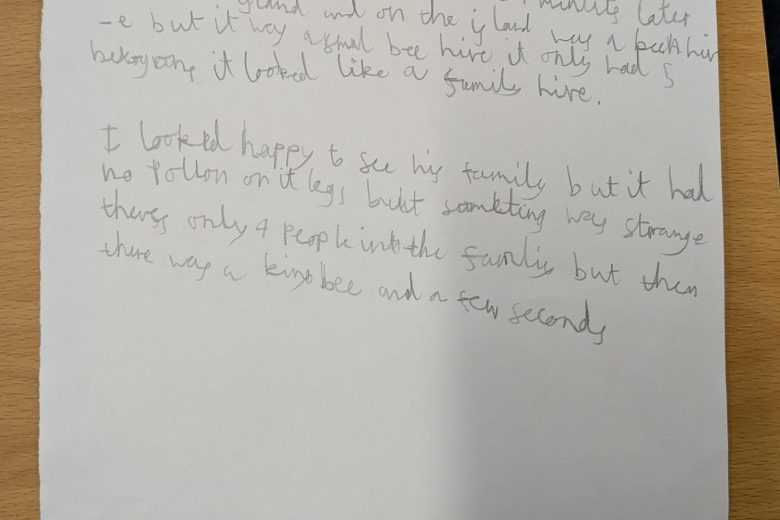 island and on the island was a beehiv
-e but it was a small bee hive it only had 5
it looked like a family hive.
I looked happy to see his family but it had
no pollon on it legs but somkting was strange
theres only 4 people into the familis but then
there was a king bee and a few seconds